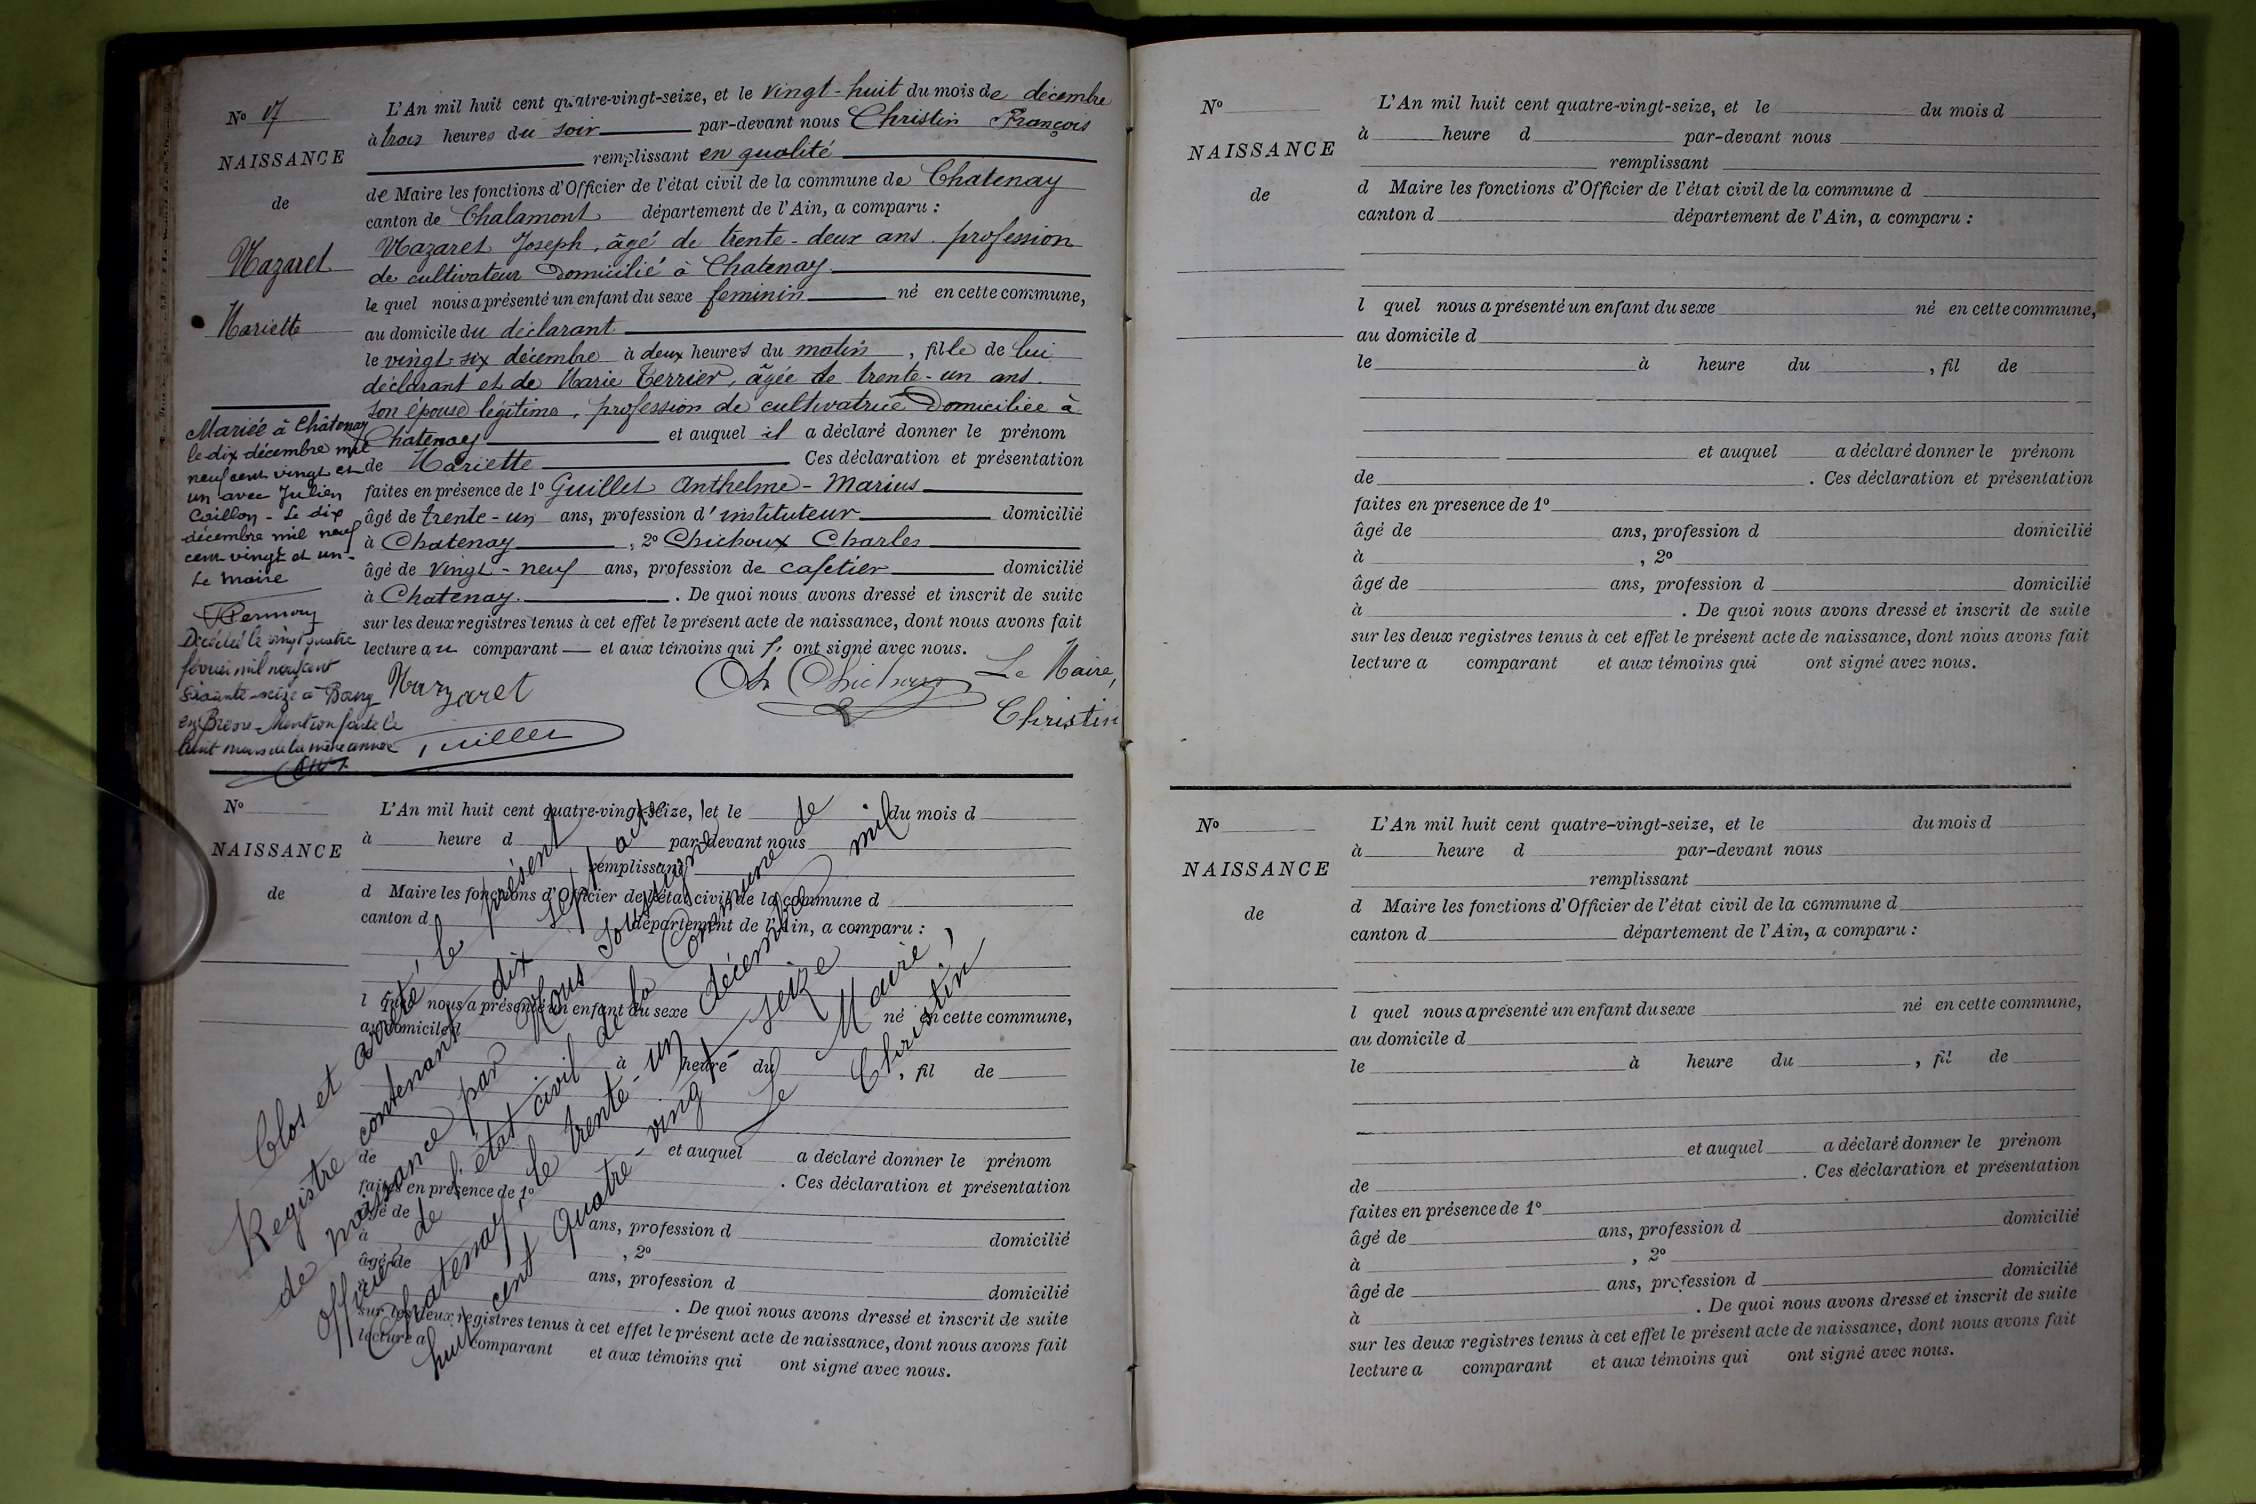 No 17
NAISSANCE
de
Mazaret
Mariette
L'An mil huit cent quatre-vingt-seize, et le vingt-huit du mois de décembre
à trois heures du soir par-devant nous Christin François
remplissant en qualité
de Maire les fonctions d'Officier de l'état civil de la commune de Chatenay
canton de Chalamont département de l'Ain, a comparu :
Mazaret Joseph, âgé de trente-deux ans. profession
de cultivateur Domicilié à Chatenay.
le quel nous a présenté un enfant du sexe feminin né en cette commune,
au domicile du déclarant
le vingt-six décembre à deux heures du matin, fille de lui
déclarant et de Marie Terrier, âgée de trente-un ans.
son épouse légitime, profession de cultivatrice Domiciliée à
Chatenay et auquel il a déclaré donner le prénom
de Mariette Ces déclaration et présentation
faites en présence de 1o Guillet Anthelme-Marius
âgé de trente-un ans, profession d'instituteur domicilié
à Chatenay, 2o Chichoux Charles
âgé de vingt-neuf ans, profession de cafetier domicilié
à Chatenay. . De quoi nous avons dressé et inscrit de suite
sur les deux registres tenus à cet effet le présent acte de naissance, dont nous avons fait
lecture au comparant — et aux témoins qui ont signé avec nous.
Mazaret
Ch Chichoux
Le Maire,
Christin
Guillet
Mariée à Châtenay
le dix décembre mil
neuf cent vingt et
un avec Julien
Caillon - Le dix
décembre mil neuf
cent vingt et un -
Le Maire
Décédée le vingt quatre
février mil neuf cent
soixante-seize à Bourg
en Bresse - Mention faite le
huit mars de la même année
No
NAISSANCE
de
L'An mil huit cent quatre-vingt-seize, et le du mois d
à heure d par-devant nous
remplissant
d Maire les fonctions d'Officier de l'état civil de la commune d
canton d département de l'Ain, a comparu :
l quel nous a présenté un enfant du sexe né en cette commune,
au domicile d
à heure du , fil de
et auquel a déclaré donner le prénom
de . Ces déclaration et présentation
faites en présence de 1o
âgé de ans, profession d domicilié
à , 2o
âgé de ans, profession d domicilié
à . De quoi nous avons dressé et inscrit de suite
sur les deux registres tenus à cet effet le présent acte de naissance, dont nous avons fait
lecture a comparant et aux témoins qui ont signé avec nous.
Clos et arrêté, le présent
Registre contenant dix sept actes
de naissance par Nous soussigné
officier de l'état civil de la Commune de
Chatenay, le trente-un décembre mil
huit cent quatre-vingt-seize
Le Maire,
Christin
No
NAISSANCE
de
L'An mil huit cent quatre-vingt-seize, et le du mois d
à heure d par-devant nous
remplissant
d Maire les fonctions d'Officier de l'état civil de la commune d
canton d département de l'Ain, a comparu :
l quel nous a présenté un enfant du sexe né en cette commune,
au domicile d
le à heure du , fil de
et auquel a déclaré donner le prénom
de . Ces déclaration et présentation
faites en presence de 1o
âgé de ans, profession d domicilié
à , 2o
âgé de ans, profession d domicilié
à . De quoi nous avons dressé et inscrit de suite
sur les deux registres tenus à cet effet le présent acte de naissance, dont nous avons fait
lecture a comparant et aux témoins qui ont signé avec nous.
No
NAISSANCE
de
L'An mil huit cent quatre-vingt-seize, et le du mois d
à heure d par-devant nous
remplissant
d Maire les fonctions d'Officier de l'état civil de la commune d
canton d département de l'Ain, a comparu :
l quel nous a présenté un enfant du sexe né en cette commune,
au domicile d
le à heure du , fil de
et auquel a déclaré donner le prénom
de . Ces déclaration et présentation
faites en présence de 1o
âgé de ans, profession d domicilié
à , 2o
âgé de ans, profession d domicilié
à . De quoi nous avons dressé et inscrit de suite
sur les deux registres tenus à cet effet le présent acte de naissance, dont nous avons fait
lecture a comparant et aux témoins qui ont signé avec nous.